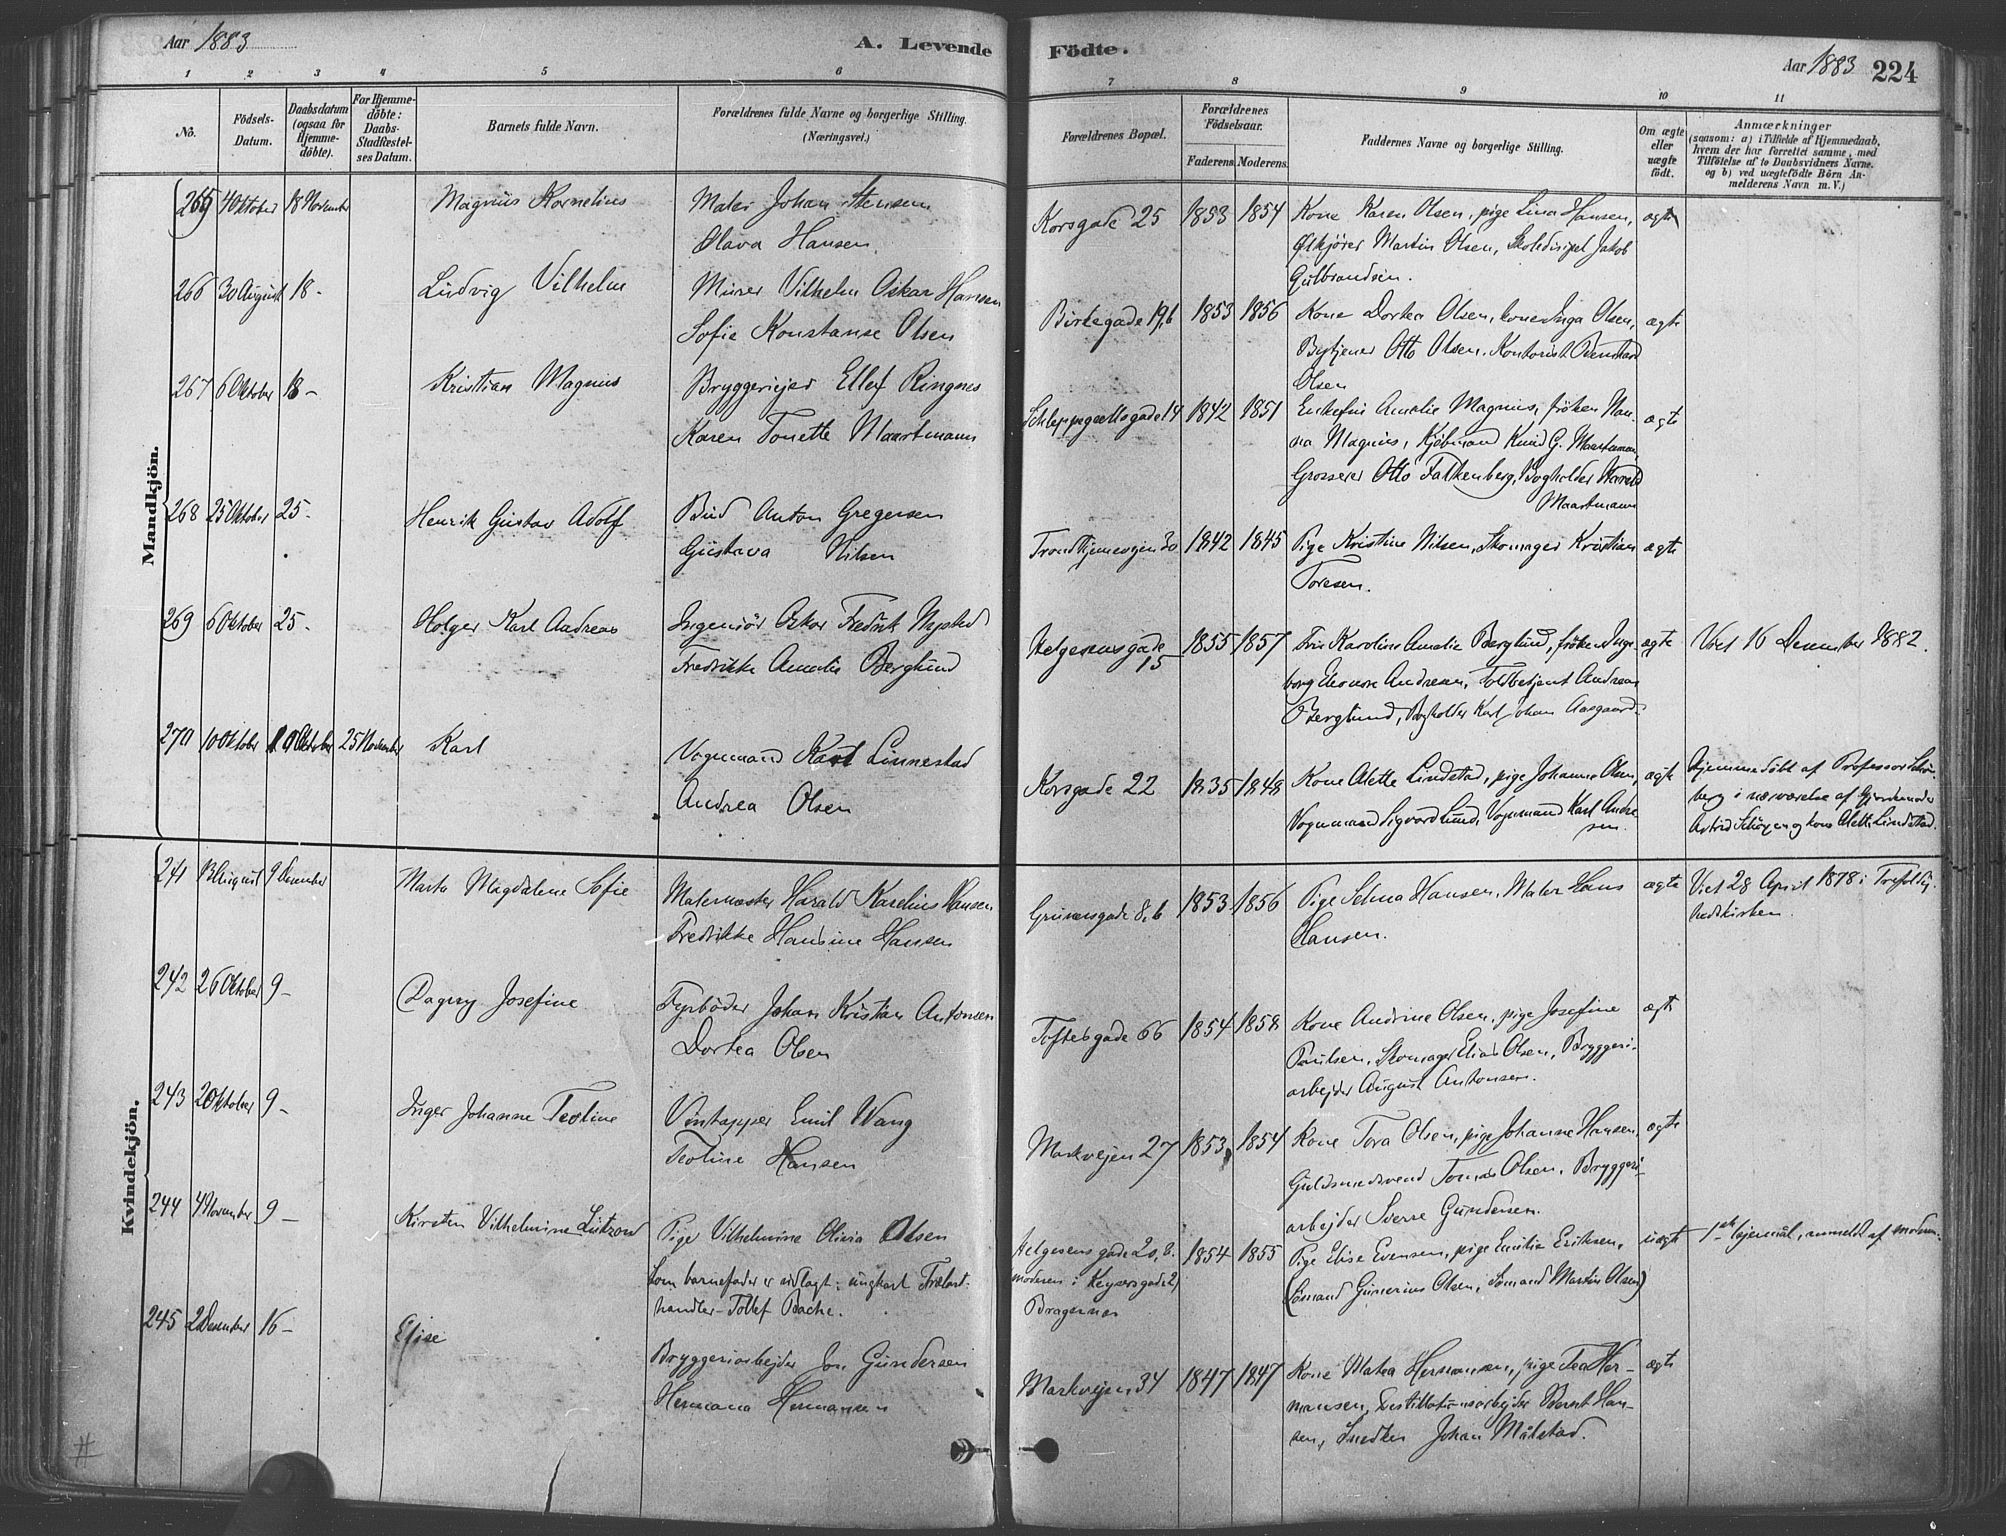 Aar 1883
A. Levende
Födte.
Aar 1883
224
1 2 3 4 5 6 7 8 9 10 11
No.
Födsels-
Datum.
Daabsdatum
(ogsaa for
Hjemme-
döbte).
For Hjemme-
döbte:
Daabs-
Stadfæstel-
ses Datum.
Barnets fulde Navn.
Forældrenes fulde Navne og borgerlige Stilling.
(Næringsvei.)
Forældrenes Bopæl.
Forældrenes
Födselsaar.
Faderens. Moderens.
Faddernes Navne og borgerlige Stilling.
Om ægte
eller
uægte
födt.
Anmærkninger
(saasom: a) i Tilfælde af Hjemmedaab,
hvem der har forrettet samme, med
Tilföielse af to Daabsvidners Navne.
og b) ved uægtefödte Börn An-
melderens Navn m. V.)
Mandkjön.
265 4 Oktober 18 November Magnus Kornelius
Maler Johan Stensen
Olava Hansen
Korsgade 25 1853 1854
Kone Karen Olsen, pige Lina Hansen, ægte
Ølkjører Martin Olsen, Skoledisipel Jakob
Gulbrandsen.
266 30 August 18- Ludvig Vilhelm
Murer Vilhelm Oskar Hansen
Sofie Konstanse Olsen
Birkegade 19b 1853 1856
Kone Dortea Olsen, kone Inga Olsen, ægte
Bytjener Otto Olsen, Kontorist
Olsen
267 6 Oktober 18- Kristian Magnus
Bryggerieier Ellef Ringnes
Karen Tonette Maartmann
Schleppegrellsgade 14 1842 1851
Enkefru Amalie Magnus, frøken Nan- ægte
na Magnus, Kjøbmand Knud G. Maartmann,
Grosserer Otto Falkenberg, Bogholder Harald
Maartmann
268 25 Oktober 25- Henrik Gustav Adolf
Bud Anton Gregersen
Gustava Nilsen
Trondhjemsvejen 30 1842 1845
Pige Kristine Nilsen, Skomager Kristian ægte
Toresen.
269 6 Oktober 25- Holger Karl Andreas
Ingeniør Oskar Fredrik Nysted
Fredrikke Amalie Berglund
Helgesensgade
15 1855 1857
Fru Karoline Amalie Berglund, frøken Inge- ægte
borg Eleonore Andresen, Toldbetjent Andreas
Berglund, Bogholder Karl Johan Aasgaard.
Viet 16 Desember 1882.
270 10 Oktober 19 Oktober 25 November Karl
Vognmand Karl Linnestad
Andrea Olsen
Korsgade 22 1835 1848
Kone Alette Lindstad, pige Johanne Olsen, ægte
Vognmand Sigvard Lund, Vognmand Karl Andre-
sen.
Hjemmedøbt af Professor Schøn-
berg i nærværelse af Gjordemoder
Astrid Schøyen og kone Alette Lindstad.
Kvindekjön.
241 13 August 9 Desember Marta Magdalene Sofie
Malermester Harald Karelius Hansen
Fredrikke Hansine Hansen
Grünersgade 8,b 1853 1856
Pige Selma Hansen, Maler Hans ægte
Hansen.
Viet 28 April 1878 i Trefoldig-
hedskirken.
242 26 Oktober 9- Dagny Josefine
Fyrbøder Johan Kristian Antonsen
Dortea Olsen
Toftesgade 66 1854 1858
Kone Andrine Olsen, pige Josefine ægte
Paulsen, Skomager Elias Olsen, Bryggeri-
arbejder August Antonsen.
243 2 Oktober 9- Inger Johanne Teoline
Vintapper Emil Wang
Teoline Hansen
Markvejen 27 1853 1854
Kone Tora Olsen, pige Johanne Hansen, ægte
Guldsmedsvend Tomas Olsen, Bryggeri-
arbejder Sverre Gundersen.
244 4 November 9- Kirsten Vilhelmine Lützow
Pige Vilhelmine Olivia Olsen
Som barnefader er udlagt: ungkarl Trælast-
handler Tollef Bache.
Helgesensgade 20,b.
moderen: Keysersgade 2,
Bragernes
1854 1855
Pige Elise Evensen, pige Emilie Eriksen, uægte
(Sømand Gunerius Olsen, Sømand Martin Olsen)
1ste lejermål, anmeldt af moderen.
245 2 Desember 16- Elise
Bryggeriarbejder Jon Gundersen
Hermana Hermansen
Markvejen 34 1847 1847
Kone Matea Hermansen, pige Tea Her- ægte
mansen, Destillationsarbejder Bernt Han-
sen, Snedker Johan Målstad.
#